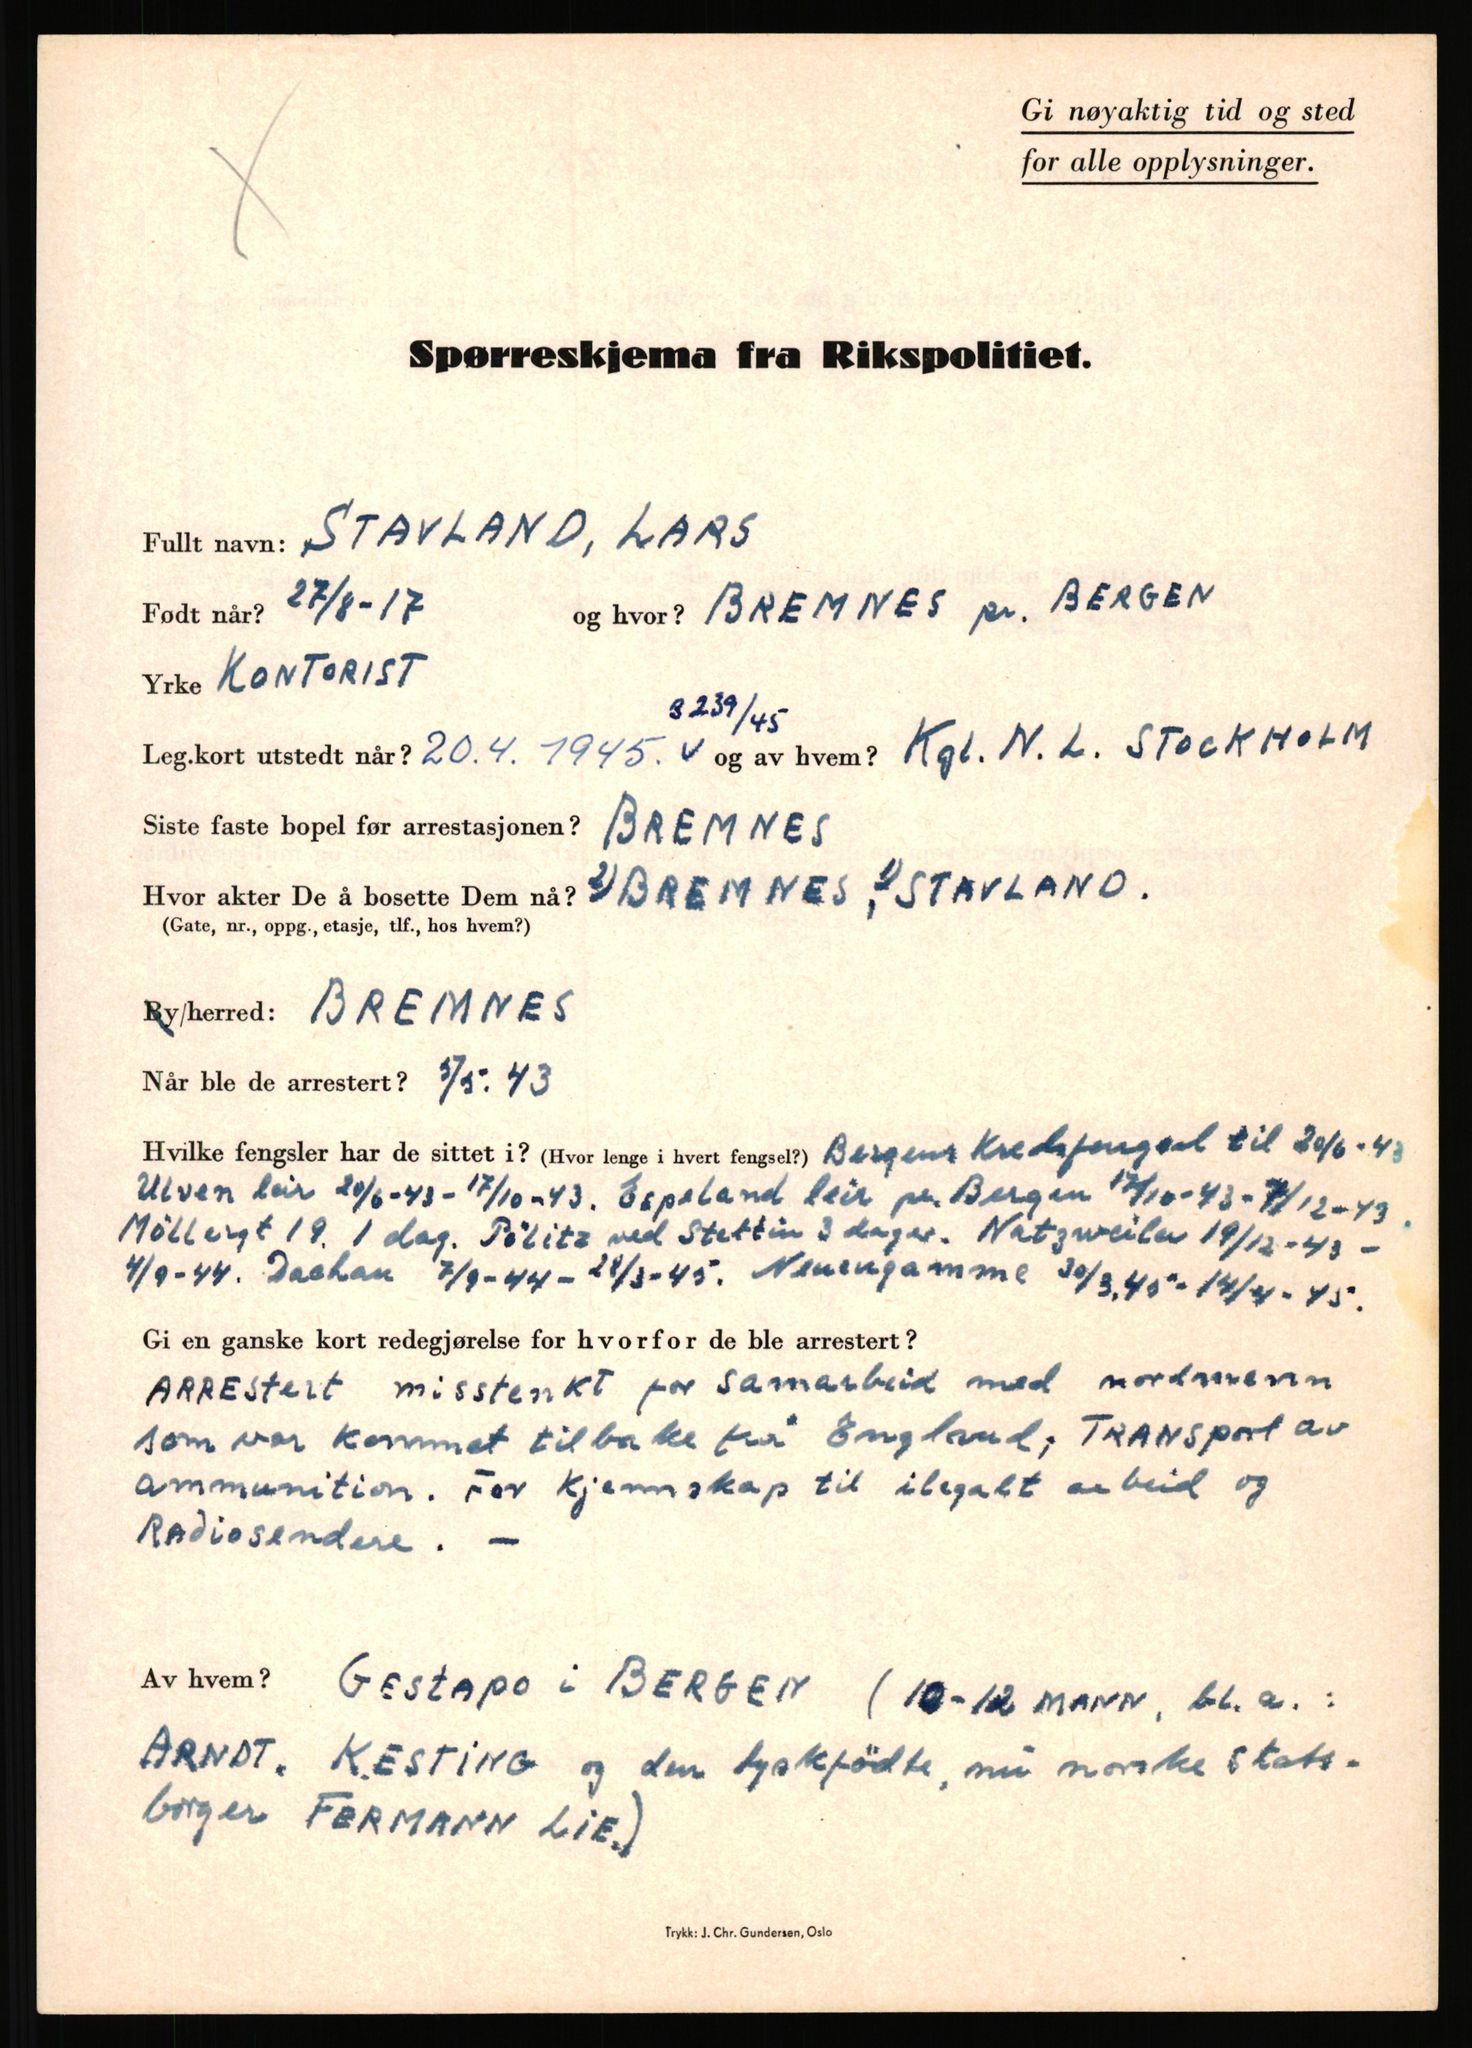 Gi nøyaktig tid og sted
for alle opplysninger.
Spørreskjema fra Rikspolitiet.
Fullt navn: STAVLAND, LARS
Født når? 27/8-17 og hvor? BREMNES pr. BERGEN
Yrke KONTORIST
3239/45
Leg.kort utstedt når? 20.4. 1945. v og av hvem? Kgl. N. L. STOCKHOLM
Siste faste bopel før arrestasjonen? BREMNES
Hvor akter De å bosette Dem nå? 2) BREMNES, 1) STAVLAND.
(Gate, nr., oppg., etasje, tlf., hos hvem?)
By/herred: BREMNES
Når ble de arrestert? /5. 43
Hvilke fengsler har de sittet i? (Hvor lenge i hvert fengsel?) Bergens Kredsfengsel til 20/6-43
Ulven leir 20/6-43-17/10-43. Espeland leir pr. Bergen 17/10-43-7/12-43.
Möllergt 19. 1 dag. Pölitz ved Stettin 3 dager. Natzweiler 19/12-43-
4/9-44. Dachau 7/9-44-28/3-45. Neuengamme 30/3.45-14/4-45.
Gi en ganske kort redegjørelse for hvorfor de ble arrestert?
ARREStert misstenkt for samarbeid med nordmenn
som var kommet tilbake frå England, TRANSport av
ammunition. For Kjennskap til ilegalt arbeid og
Radiosendere. -
Av hvem? GEStapo i BERGEN (10-12 MANN, bl. a. :
ARNDT. KESTING og den tyskfödte, nu norske stats-
borger FERMANN LIE.)
Trykk: J. Chr. Gundersen, Oslo